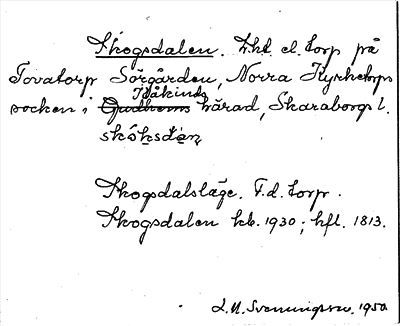 Skogsdalen. Lht el. torp på
Tovatorp Sörgården, Norra Kyrketorps
socken i Gudhems Valåkinds härad, Skaraborgs l.
skóksdan
Skogsdalsläge. F.d. torp.
Skogsdalen kb. 1930; hfl. 1813.
1950